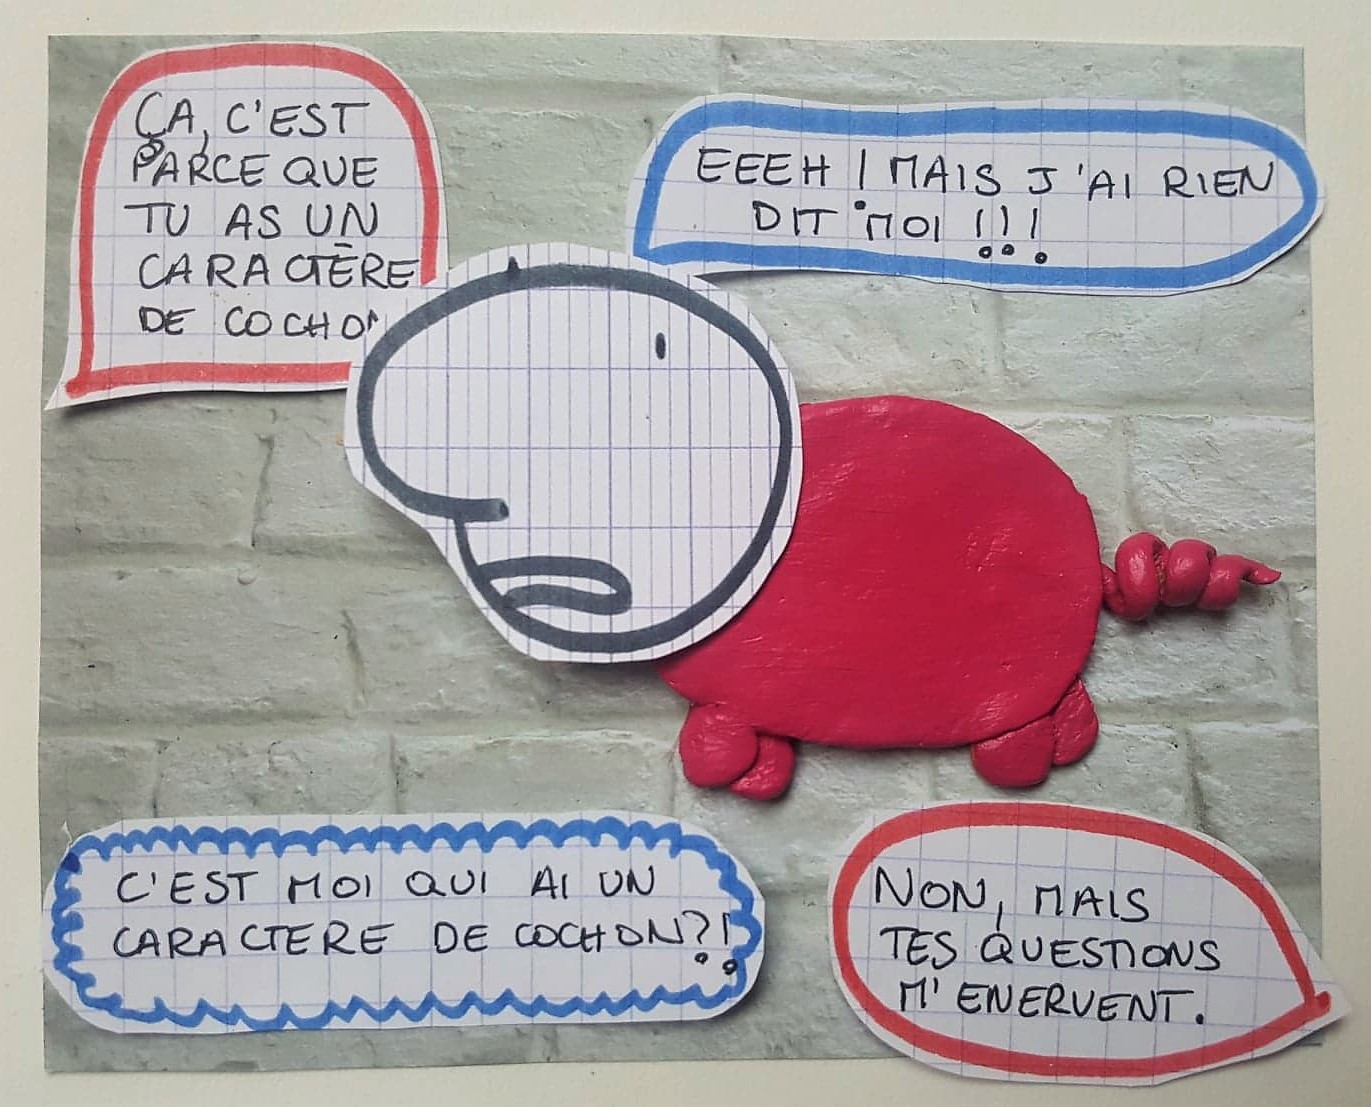 ÇA, C'EST
PARCE QUE
TU AS UN
CARACTÈRE
DE COCHON
EEEH ! MAIS J'AI RIEN
DIT MOI !!!
C'EST MOI QUI AI UN
CARACTERE DE COCHON?!
NON, MAIS
TES QUESTIONS
M'ENERVENT.